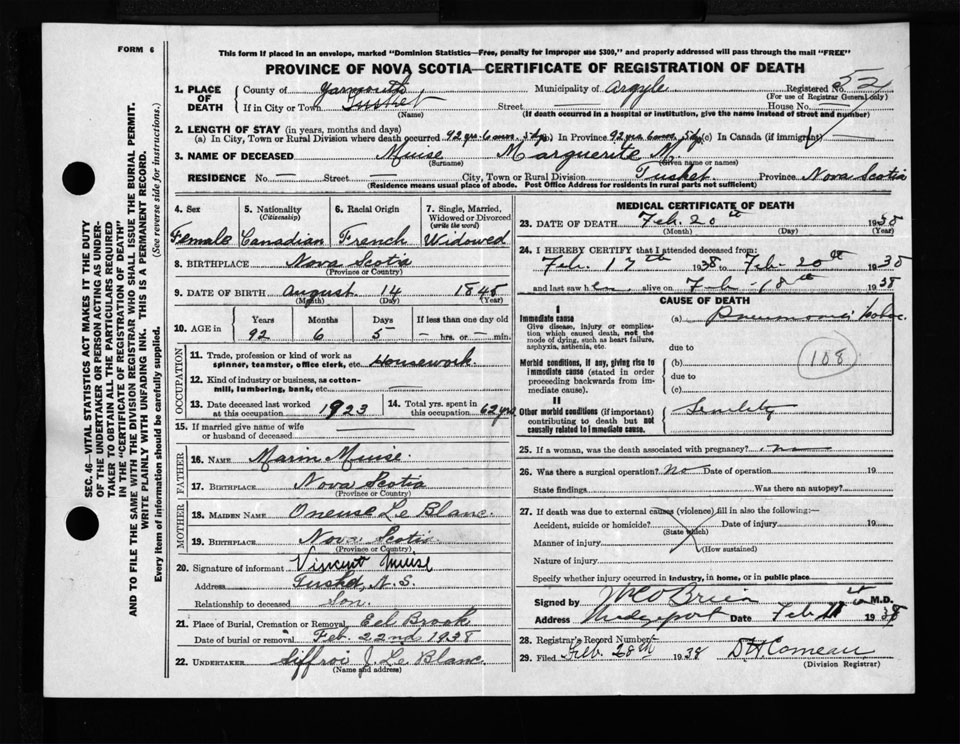 FORM 6
This form if placed in an envelope, marked "Dominion Statistics—Free, penalty for improper use $300," and properly addressed will pass through the mail "FREE"
PROVINCE OF NOVA SCOTIA—CERTIFICATE OF REGISTRATION OF DEATH
1. PLACE OF DEATH
County of Yarmouth Municipality of Argyle Registered No. 52
(For use of Registrar General only)
If in City or Town Tusket Street House No. —
(Name) (If death occurred in a hospital or institution, give the name instead of street and number)
2. LENGTH OF STAY (in years, months and days)
(a) In City, Town or Rural Division where death occurred 92 yrs. 6 mos. 5 dys (b) In Province 92 yrs. 6 mos. 5 dy (c) In Canada (if immigrant)
3. NAME OF DECEASED Muise Marguerite M.
(Surname) (Given name or names)
RESIDENCE No. — Street — City, Town or Rural Division Tusket Province Nova Scotia
(Residence means usual place of abode. Post Office Address for residents in rural parts not sufficient)
4. Sex
Female
5. Nationality
(Citizenship)
Canadian
6. Racial Origin
French
7. Single, Married, Widowed or Divorced
(write the word)
Widowed
8. BIRTHPLACE Nova Scotia
(Province or Country)
9. DATE OF BIRTH August 14 1845
(Month) (Day) (Year)
10. AGE in Years Months Days If less than one day old
92 6 5 — hrs. or — min.
OCCUPATION
11. Trade, profession or kind of work as spinner, teamster, office clerk, etc. Housework
12. Kind of industry or business, as cotton-mill, lumbering, bank, etc. —
13. Date deceased last worked at this occupation 1923
14. Total yrs. spent in this occupation 62 yrs
15. If married give name of wife or husband of deceased —
FATHER
16. NAME Marin Muise.
17. BIRTHPLACE Nova Scotia
(Province or Country)
MOTHER
18. MAIDEN NAME Le Blanc.
19. BIRTHPLACE Nova Scotia
(Province or Country)
20. Signature of informant Vincent Muise
Address Tusket, N.S.
Relationship to deceased Son.
21. Place of Burial, Cremation or Removal Eel Brook
Date of burial or removal Feb. 22nd 1938
22. UNDERTAKER Siffroi J. Le Blanc.
(Name and address)
MEDICAL CERTIFICATE OF DEATH
23. DATE OF DEATH Feb. 20th 1938
(Month) (Day) (Year)
24. I HEREBY CERTIFY that I attended deceased from:
Feb. 17th 1938 to Feb. 20th 1938
and last saw her alive on Feb. 18th 1938
CAUSE OF DEATH
I
Immediate cause
Give disease, injury or complication which caused death, not the mode of dying, such as heart failure, asphyxia, asthenia, etc.
(a) Pneumonia lobar
due to
Morbid conditions, if any, giving rise to immediate cause (stated in order proceeding backwards from immediate cause).
(b)
due to
(c)
108
II
Other morbid conditions (if important) contributing to death but not causally related to immediate cause.
Senility
25. If a woman, was the death associated with pregnancy? no
26. Was there a surgical operation? No Date of operation 19
State findings Was there an autopsy?
27. If death was due to external causes (violence) fill in also the following:—
Accident, suicide or homicide? Date of injury 19
(State which)
Manner of injury
(How sustained)
Nature of injury
Specify whether injury occurred in industry, in home, or in public place
Signed by O'Brien M.D.
Address Wedgeport Date Feb 1938
28. Registrar's Record Number
29. Filed Feb. 28th 1938 Comeau
(Division Registrar)
SEC. 46—VITAL STATISTICS ACT MAKES IT THE DUTY
OF THE UNDERTAKER OR PERSON ACTING AS UNDER-
TAKER TO OBTAIN ALL THE PARTICULARS REQUIRED
IN THE "CERTIFICATE OF REGISTRATION OF DEATH"
AND TO FILE THE SAME WITH THE DIVISION REGISTRAR WHO SHALL ISSUE THE BURIAL PERMIT.
WRITE PLAINLY WITH UNFADING INK. THIS IS A PERMANENT RECORD.
Every item of information should be carefully supplied. (See reverse side for instructions.)